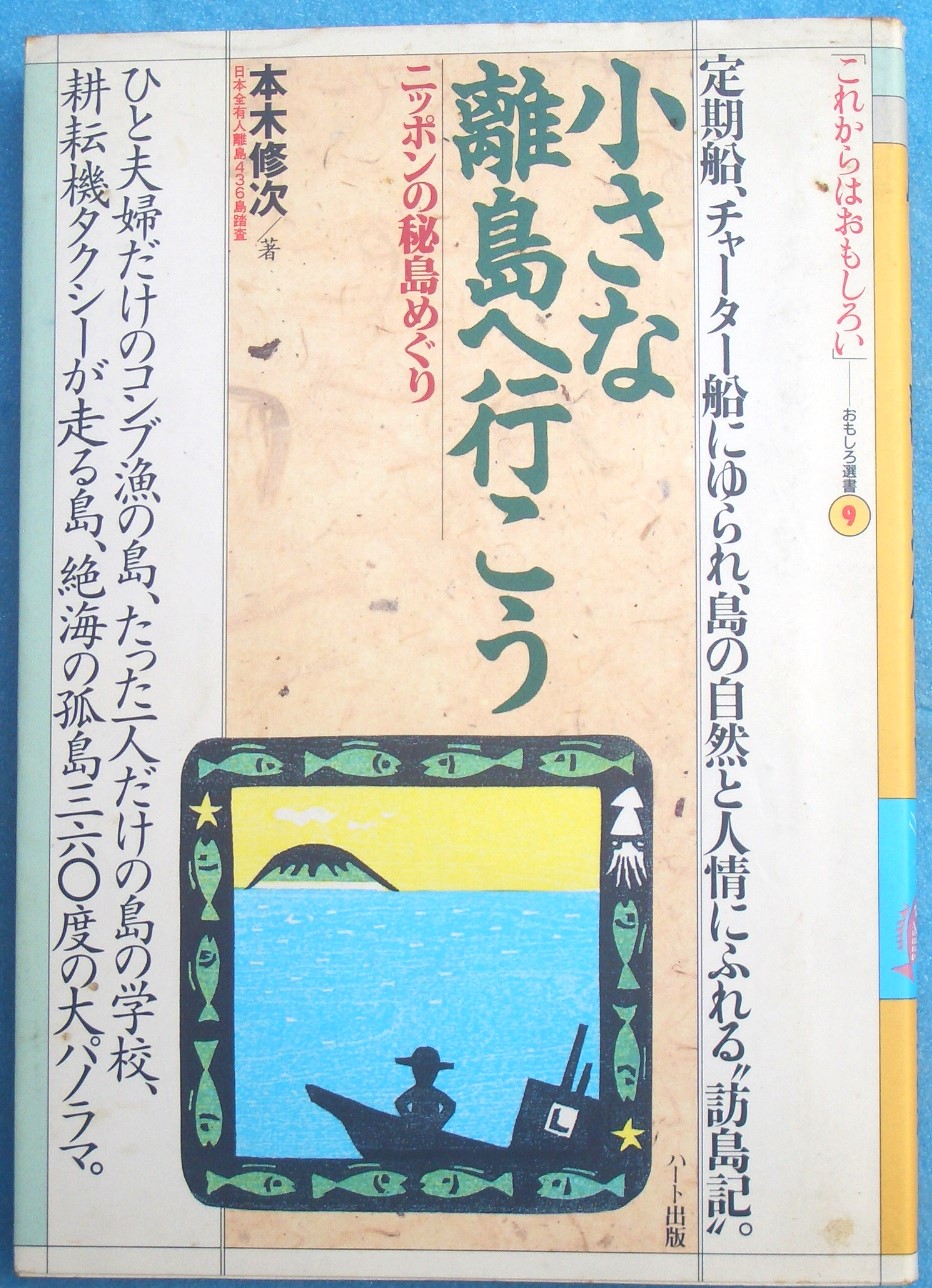 「これからはおもしろい」
おもしろ選書
9
定期船、チャーター船にゆられ、島の自然と人情にふれる〝訪島記〟。
小さな
離島へ行こう
ニッポンの秘島めぐり
本木修次／著
日本全有人離島436島踏査
ひと夫婦だけのコンブ漁の島、たった一人だけの島の学校、
耕耘機タクシーが走る島、絶海の孤島三六〇度の大パノラマ。
ハート出版